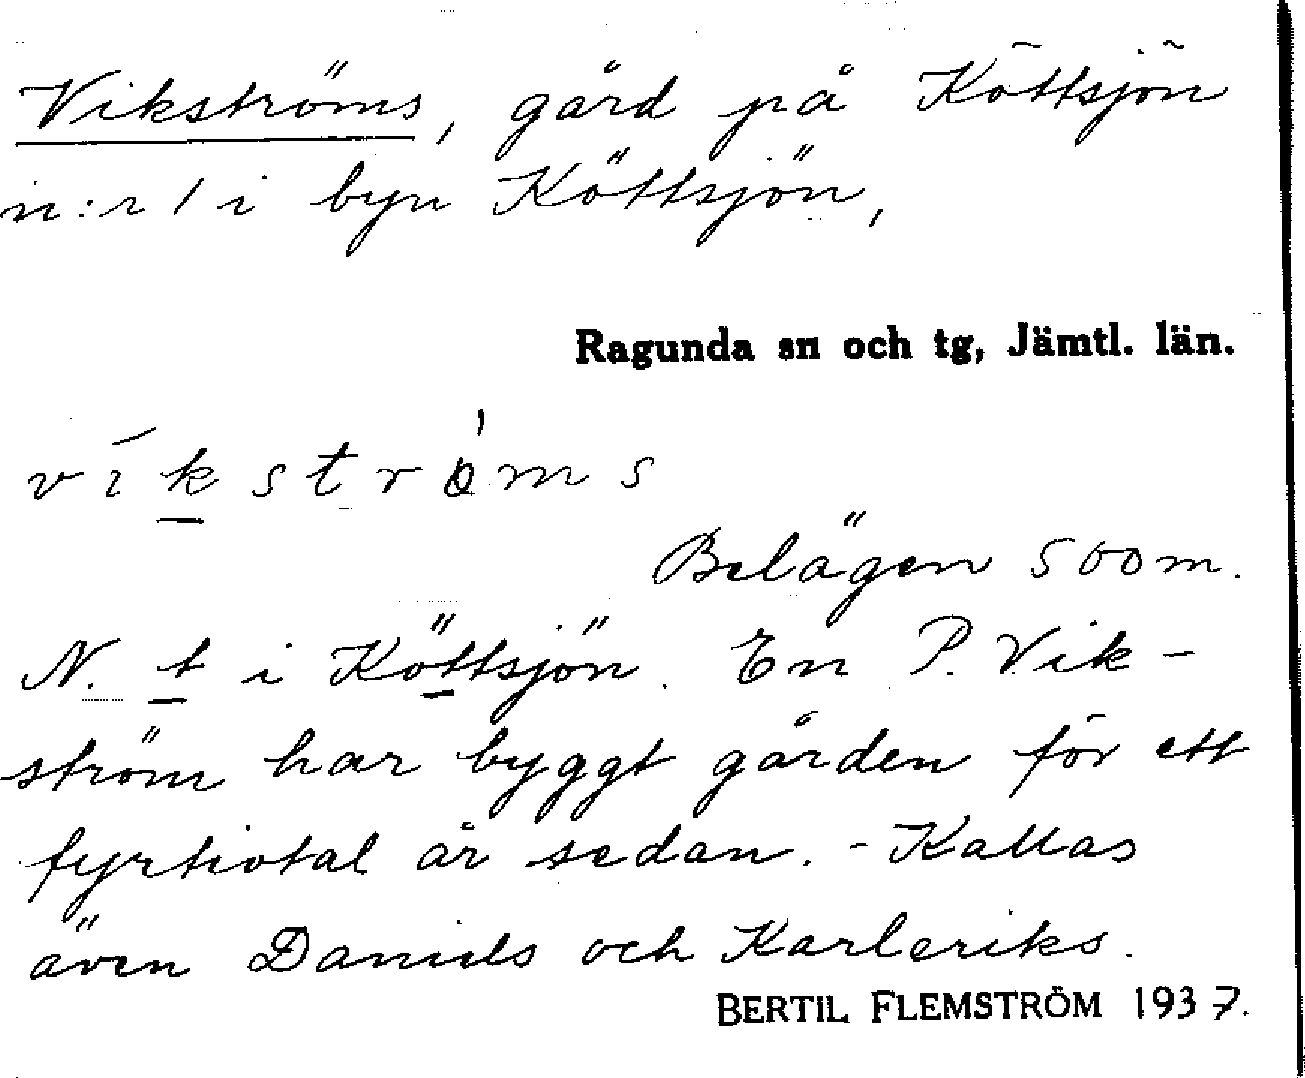 Vikströms, gård på Köttsjön
n:r 1 i byn Köttsjön,
Ragunda sn och tg, Jämtl. län.
víkströms
Belägen 500 m.
N. t i Köttsjön. En P. Vik-
ström har byggt gården för ett
fyrtiotal år sedan. - Kallas
även Daniels och Karleriks.
BERTIL FLEMSTRÖM 1937.